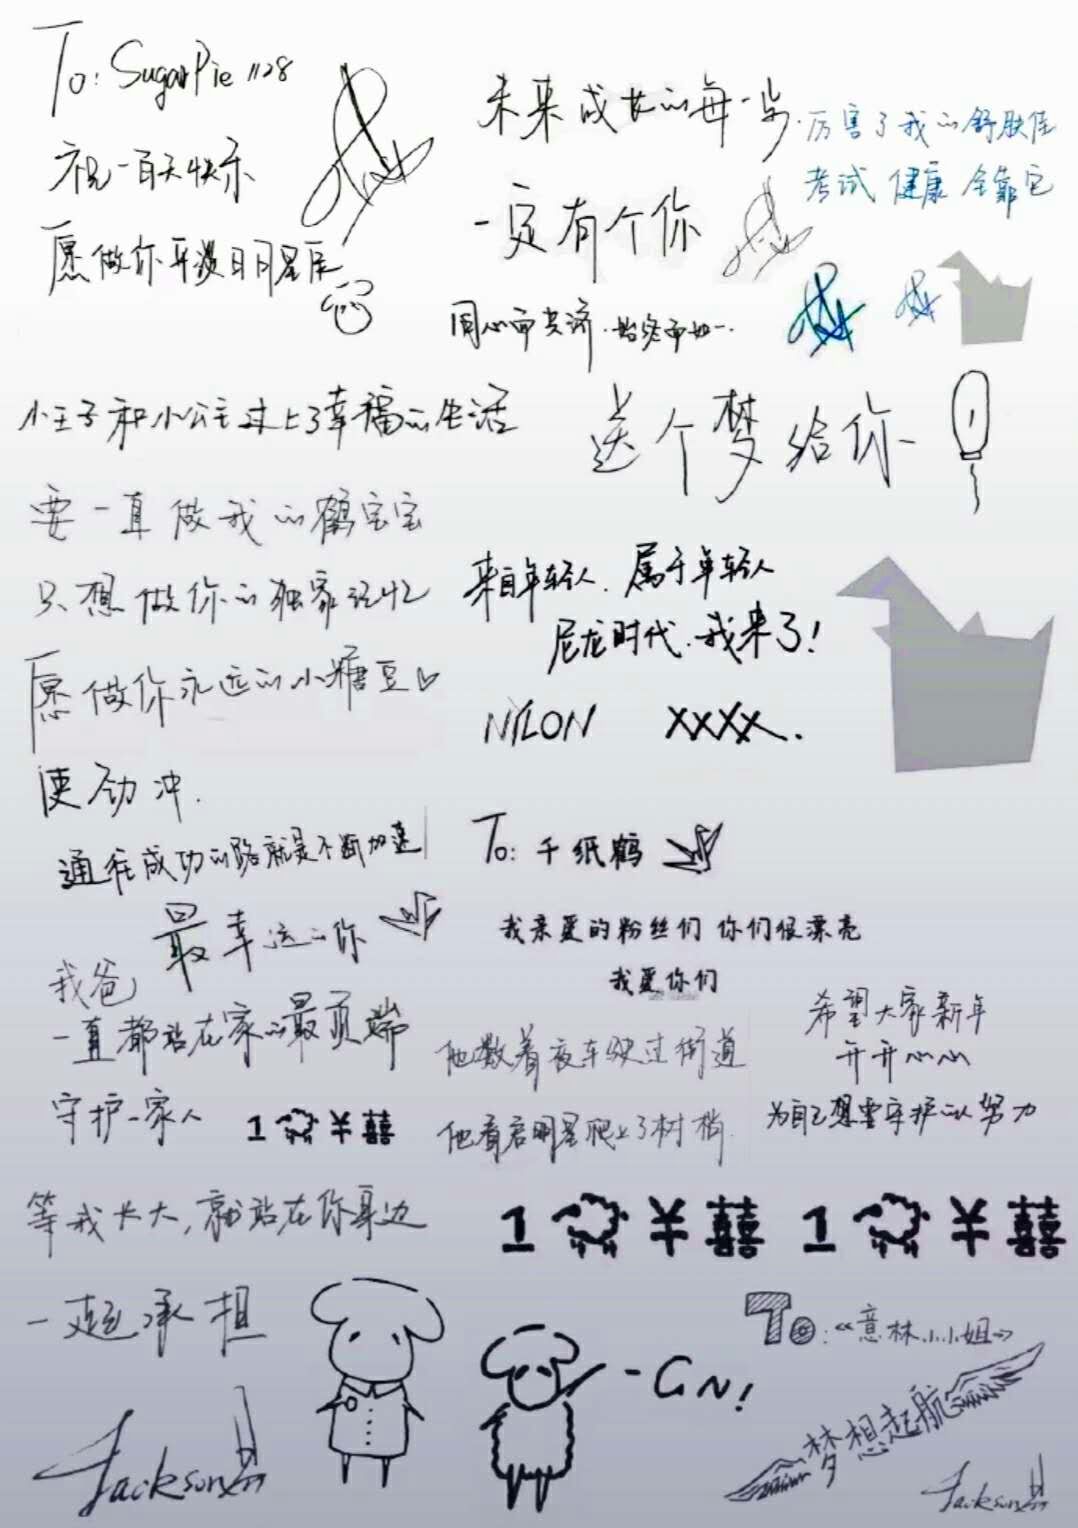 To: SugarPie 1128
祝一百天快乐
愿做你平淡日月星辰
未来成长的每一步
一定有个你
同心而共济.始终而如一.
厉害了我的舒肤佳
考试 健康 全靠它
小王子和小公主过上了幸福的生活
送个梦给你
要一直做我的鹤宝宝
只想做你的独家记忆
愿做你永远的小糖豆♡
使劲冲.
来自年轻人.属于年轻人
尼龙时代.我来了!
NYLON XXXX.
通往成功的路就是不断加速
最幸运的你
To: 千纸鹤
我亲爱的粉丝们 你们很漂亮
我爱你们
我爸
一直都站在家的最顶端
守护一家人
1 ¥ 囍
他散着夜车驶过街道
他看启明星爬上了树梢.
希望大家新年
开开心心
为自己想要守护的人努力
等我长大,就站在你身边
一起承担
1 ¥ 囍 1 ¥ 囍
-GN!
To:《意林小小姐》
梦想起航
Jackson
Jackson